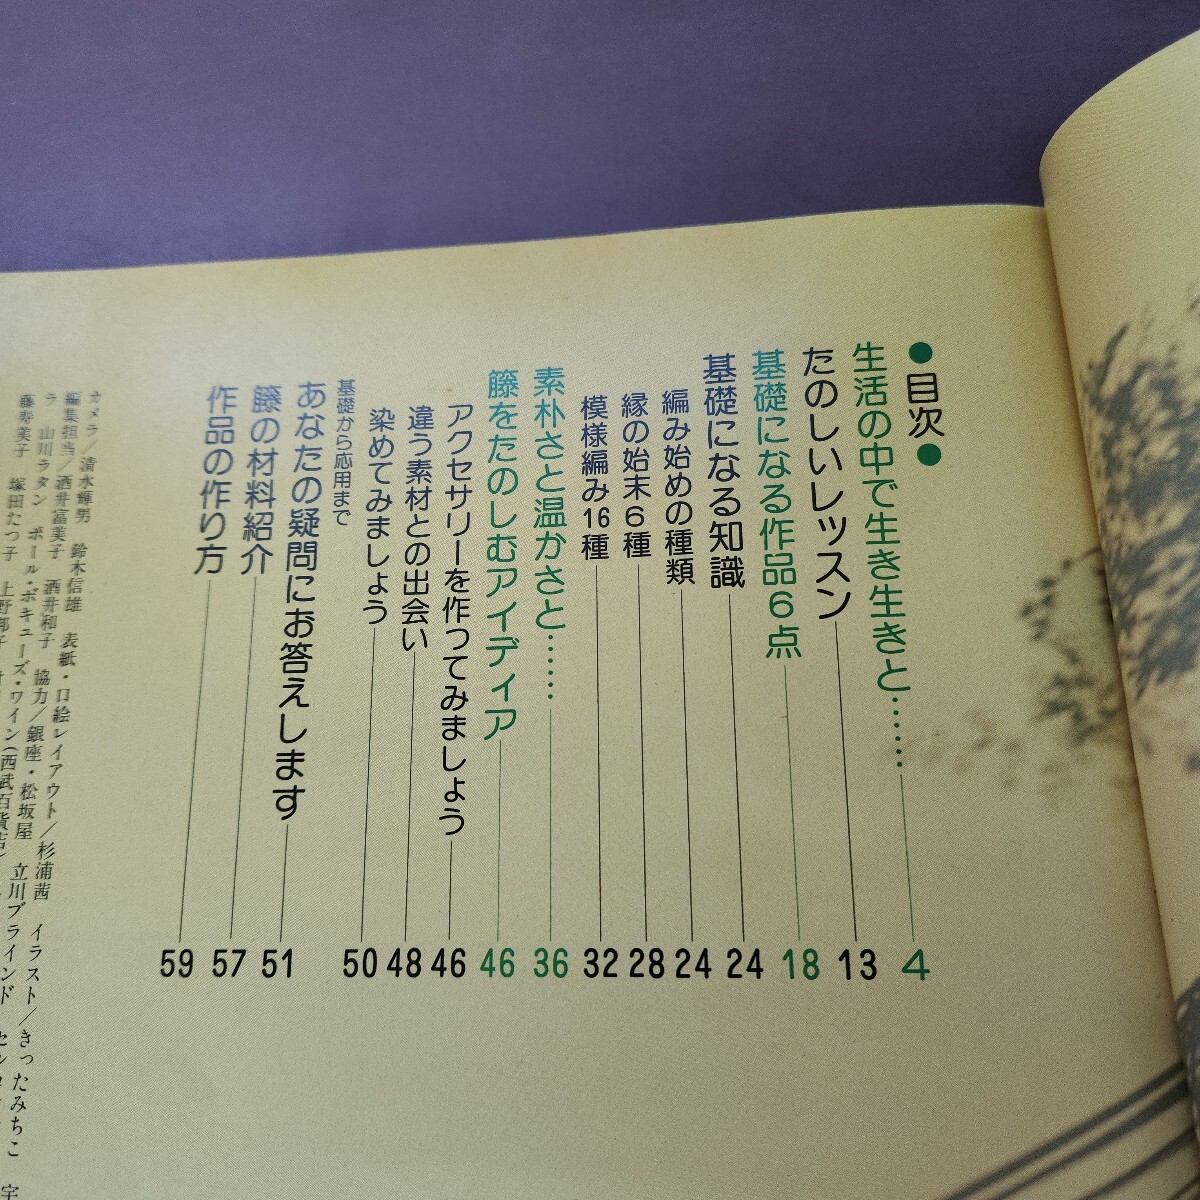 ●目次●
生活の中で生き生きと……4
たのしいレッスン 13
基礎になる作品6点 18
基礎になる知識 24
編み始めの種類 24
縁の始末6種 28
模様編み16種 32
素朴さと温かさと…… 36
籐をたのしむアイディア 46
アクセサリーを作ってみましょう 46
違う素材との出会い 48
染めてみましょう 50
基礎から応用まで
あなたの疑問にお答えします 51
籐の材料紹介 57
作品の作り方 59
カメラ/清水輝男 鈴木信雄 表紙・口絵レイアウト/杉浦茜 イラスト/きったみちこ
編集担当/酒井富美子 酒井和子 協力/銀座・松坂屋 立川ブラインド
ラ 山川ラタン ポール・ボキューズ・ワイン(西武百貨店)
藤寿美子 塚田たつ子 上野